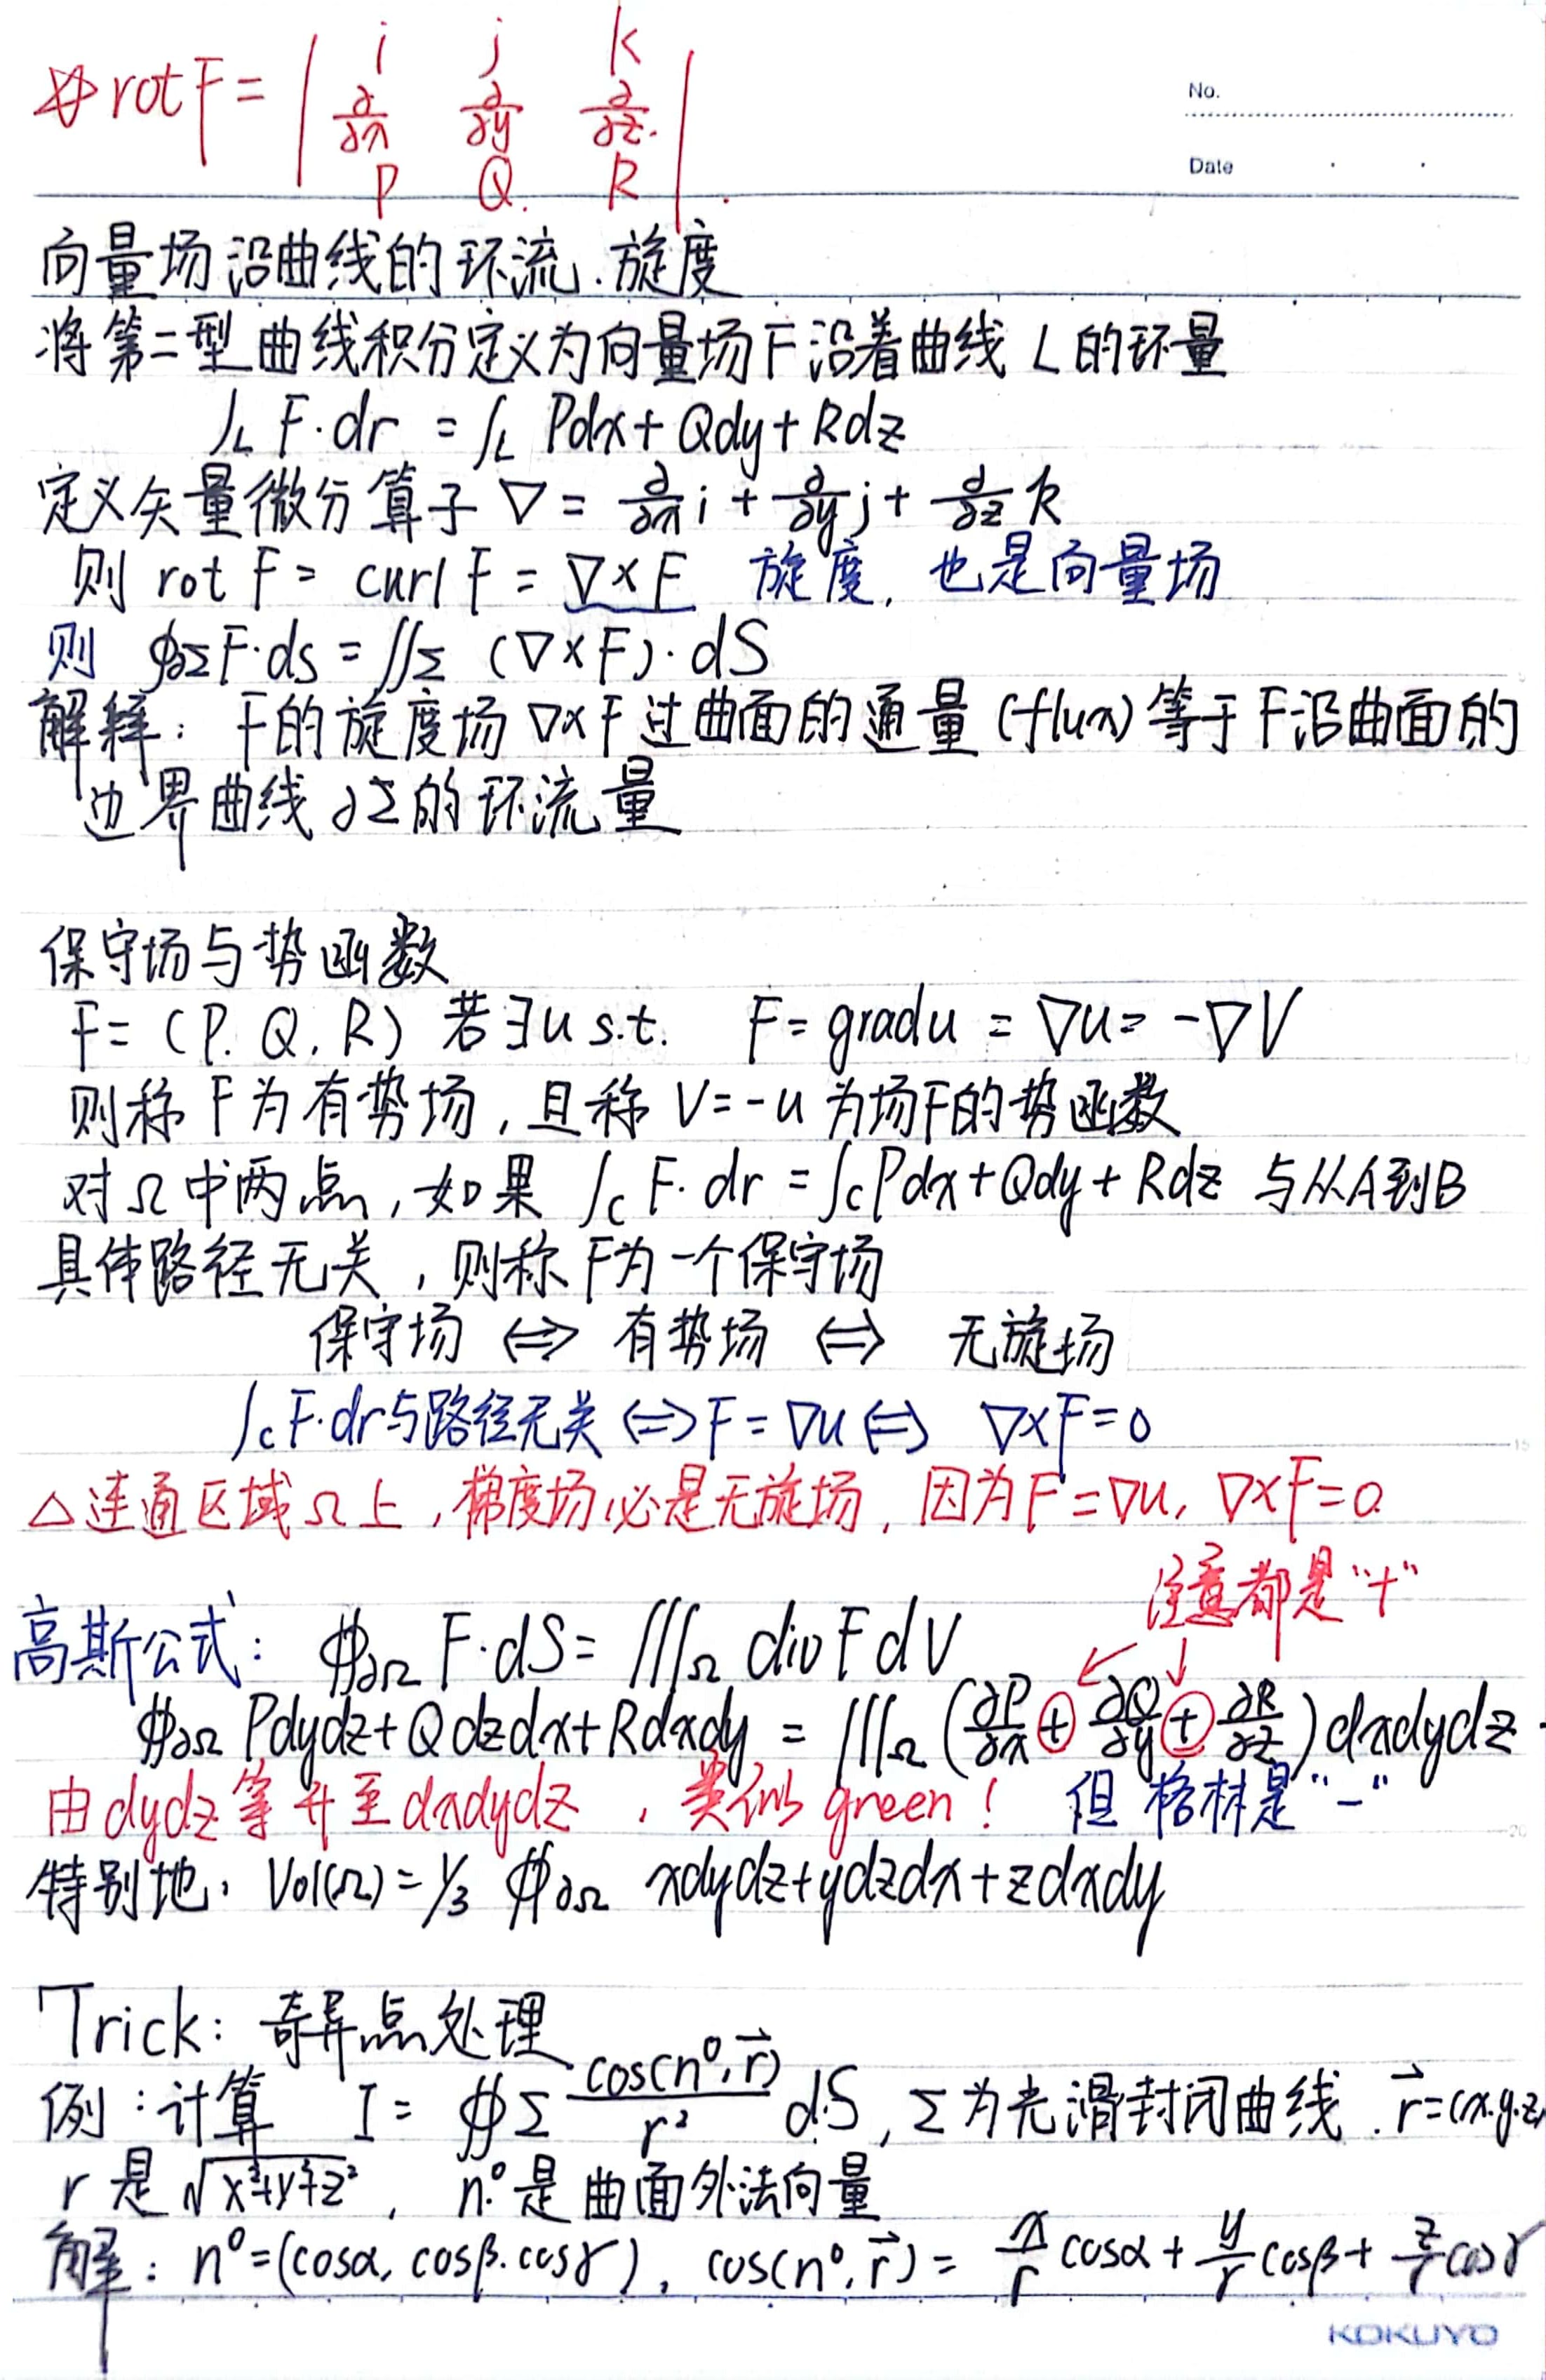 ※ rot F = | i j k
∂/∂x ∂/∂y ∂/∂z
P Q R |
No.
Date
向量场沿曲线的环流.旋度
将第二型曲线积分定义为向量场F沿着曲线L的环量
∫L F·dr = ∫L Pdx+Qdy+Rdz
定义矢量微分算子 ∇ = ∂/∂x i + ∂/∂y j + ∂/∂z k
则 rot F = curl F = ∇×F 旋度, 也是向量场
则 ∮∂Σ F·ds = ∬Σ (∇×F)·dS
解释: F的旋度场 ∇×F 过曲面的通量 (flux) 等于 F沿曲面的
边界曲线 ∂Σ的环流量
保守场与势函数
F = (P. Q. R) 若∃u s.t. F = grad u = ∇u = -∇V
则称 F为有势场, 且称 V=-u 为场F的势函数
对Ω中两点, 如果 ∫c F·dr = ∫c Pdx+Qdy+Rdz 与从A到B
具体路径无关, 则称F为一个保守场
保守场 ⟺ 有势场 ⟺ 无旋场
∫c F·dr与路径无关 ⟺ F = ∇u ⟺ ∇×F=0
△连通区域Ω上, 梯度场必是无旋场, 因为F=∇u, ∇×F=0.
注意都是“+”
高斯公式: ∯∂Ω F·dS = ∭Ω div F dV
∯∂Ω Pdydz+Qdzdx+Rdxdy = ∭Ω (∂P/∂x + ∂Q/∂y + ∂R/∂z) dxdydz
由dydz等升至dxdydz, 类似green! 但格林是“-”
特别地, Vol(Ω) = 1/3 ∯∂Ω xdydz+ydzdx+zdxdy
Trick: 奇异点处理
例: 计算 I = ∯Σ cos(n⁰, r⃗)/r² dS, Σ为光滑封闭曲线. r⃗=(x.y.z)
r 是 √x²+y²+z², n⁰是曲面外法向量
解: n⁰=(cosα, cosβ. cosγ), cos(n⁰, r⃗) = x/r cosα + y/r cosβ + z/r cosγ
KOKUYO